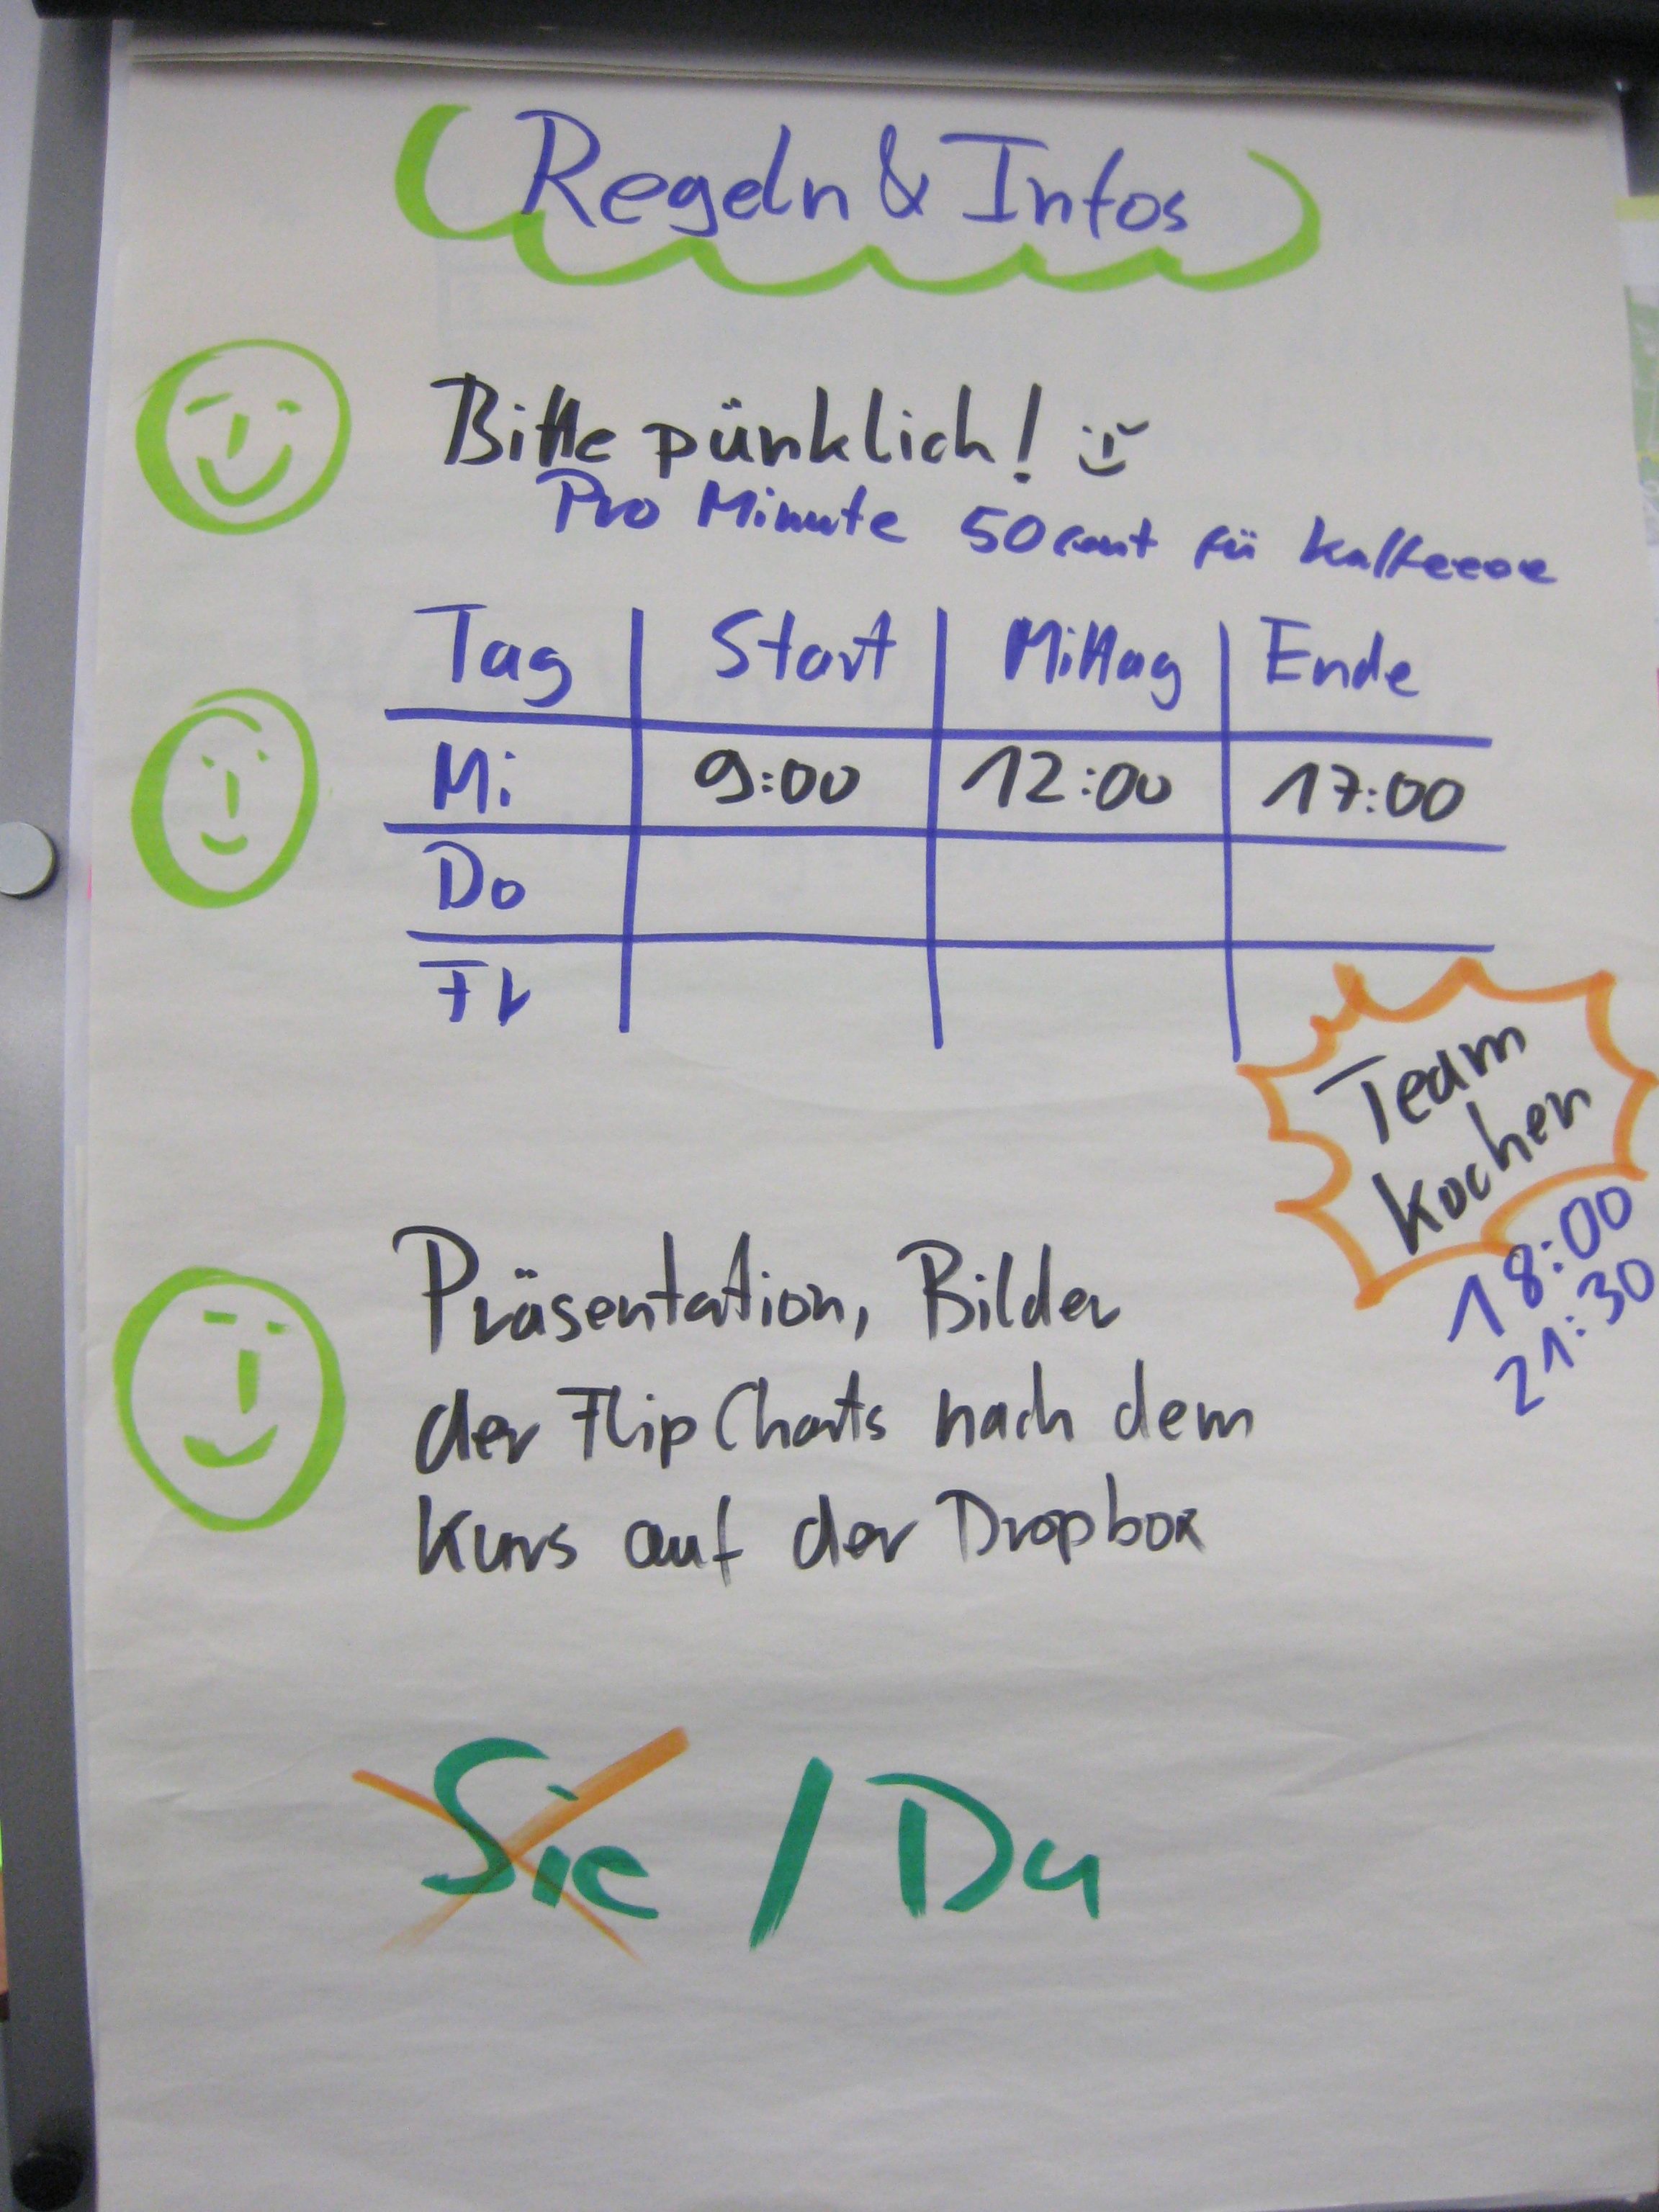 Regeln & Infos
Bitte pünklich!
Pro Minute 50 cent für Kaffeeee
Tag Start Mittag Ende
Mi 9:00 12:00 17:00
Do
Fr
Team
kochen
18:00
21:30
Präsentation, Bilder
der FlipCharts nach dem
Kurs auf der Dropbox
Sie / Du